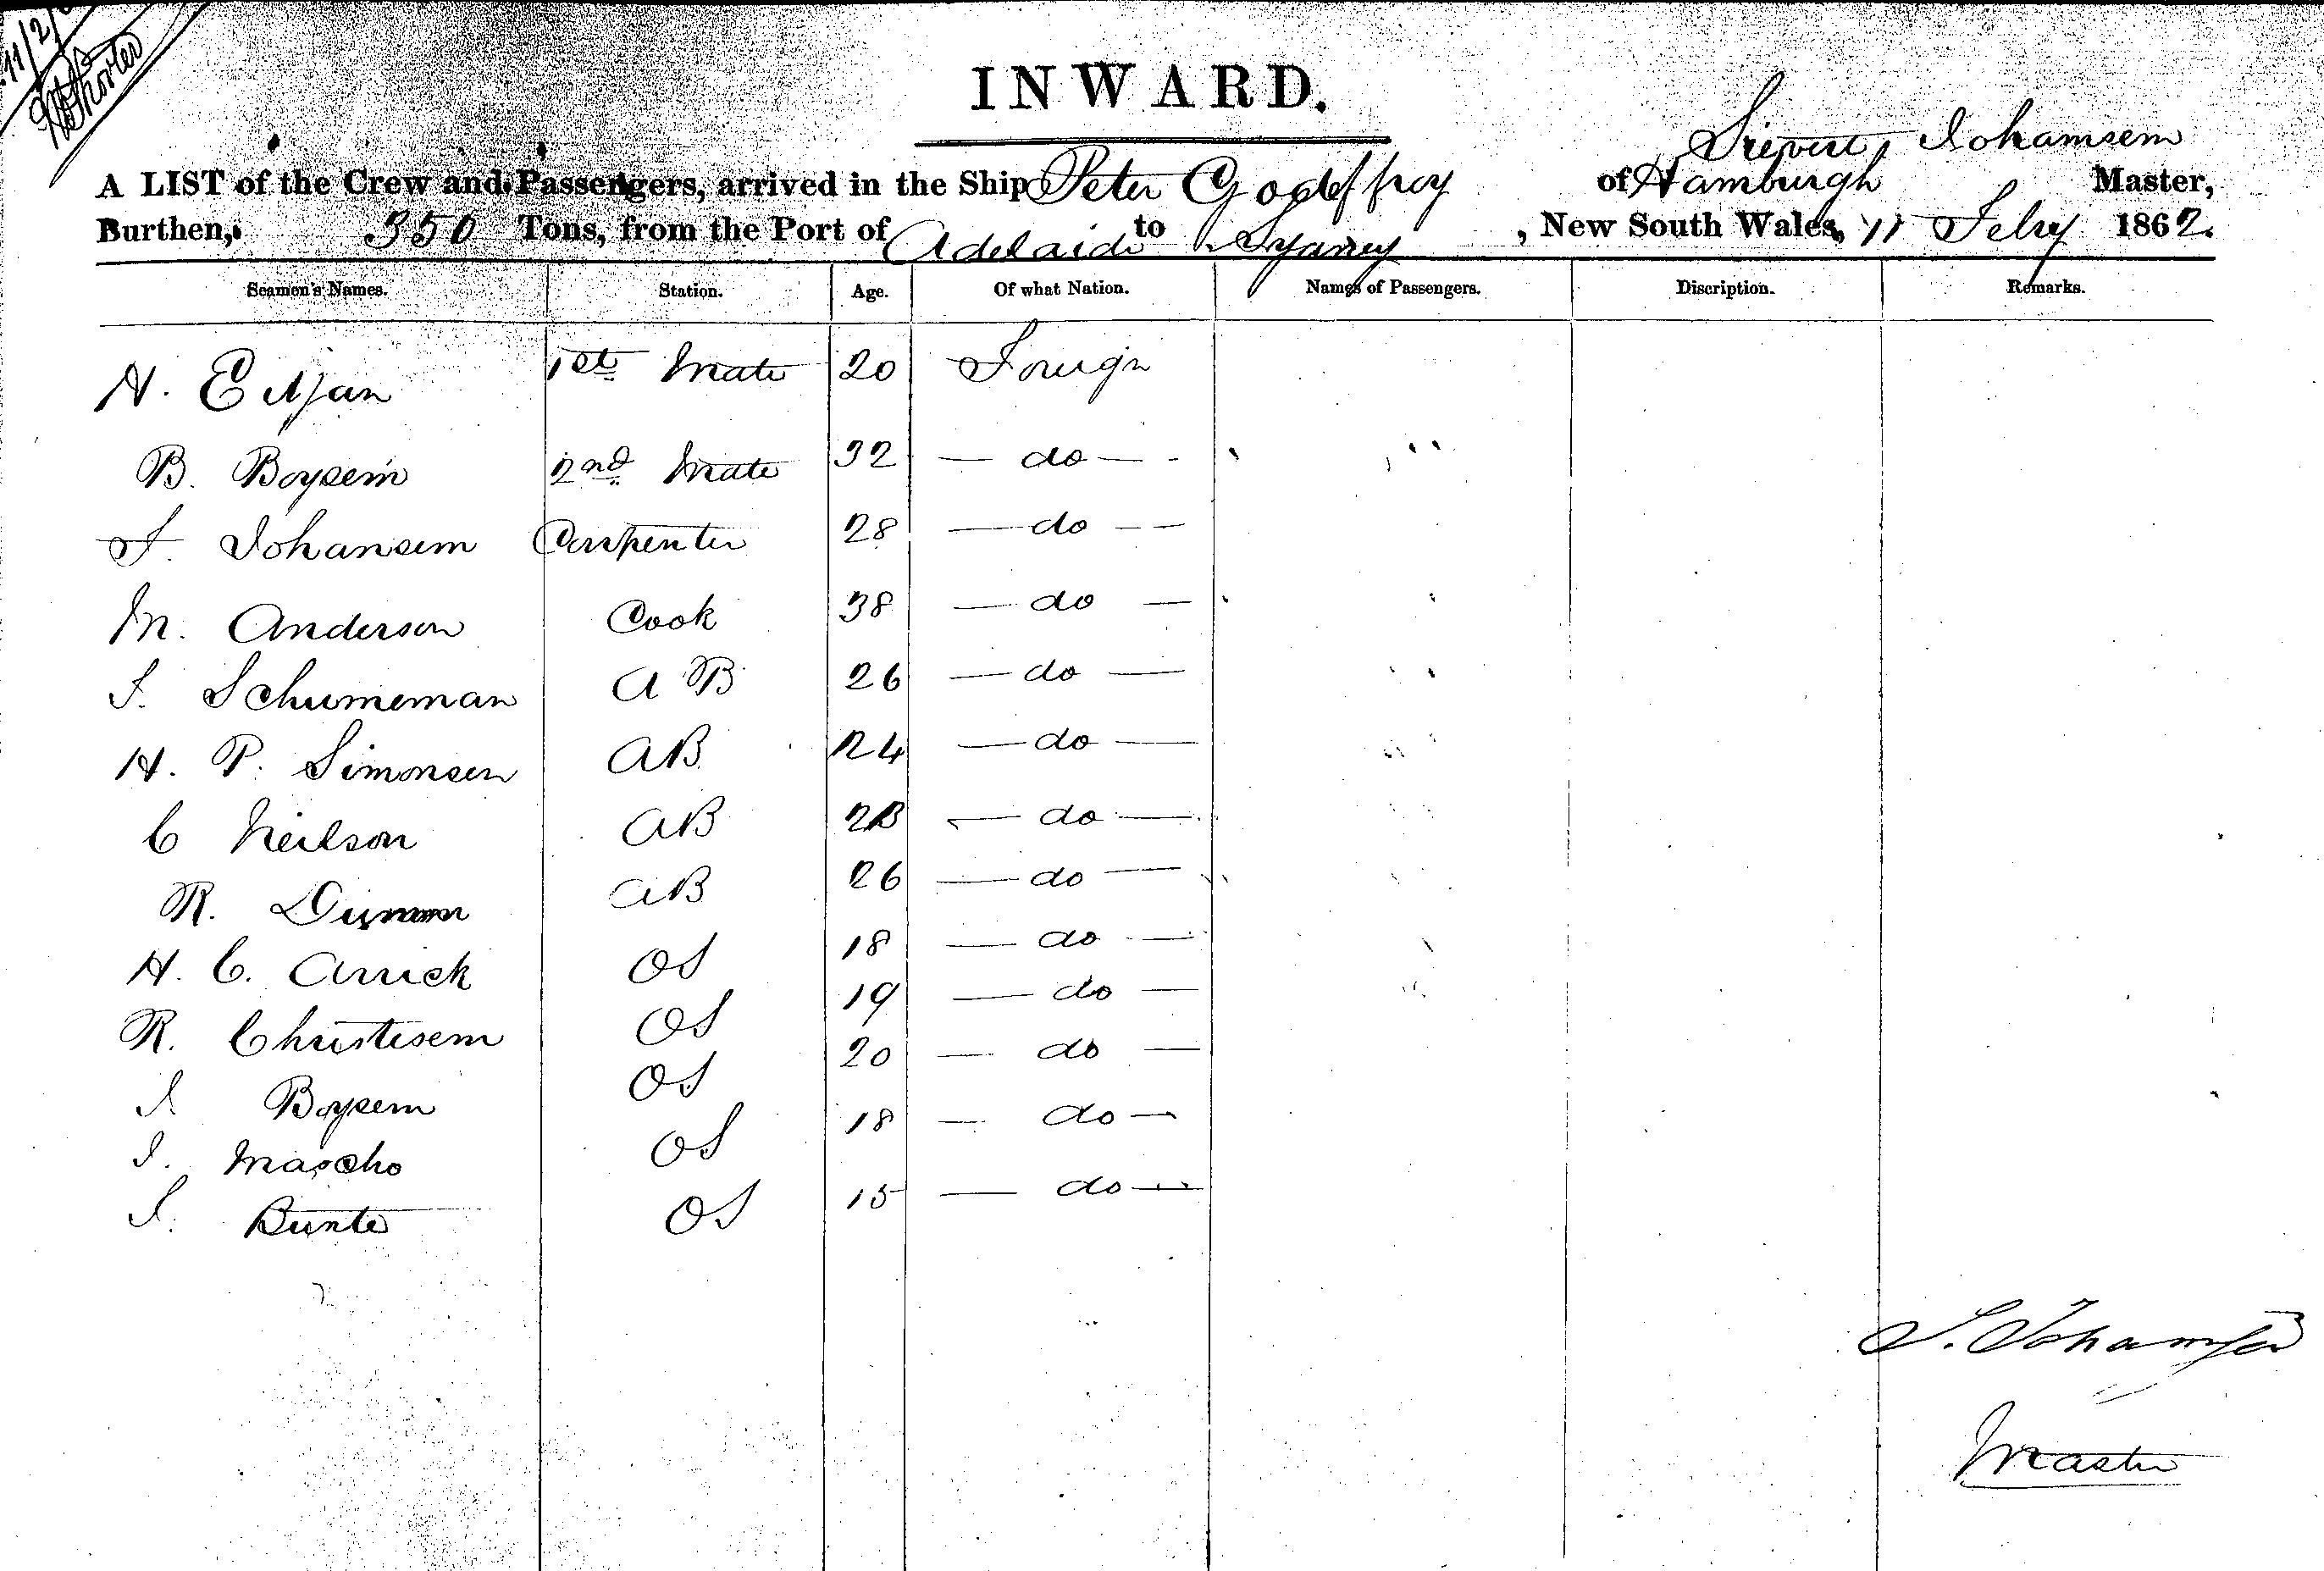 11/2/
INWARD.
Sievert Johannsen
A LIST of the Crew and Passengers, arrived in the Ship Peter Godeffroy of Hamburgh Master,
Burthen, 350 Tons, from the Port of Adelaide to Sydney, New South Wales, 11 Feby 1862.
Seamen's Names. Station. Age. Of what Nation. Names of Passengers. Discription. Remarks.
H. 1st Mate 20 Foreign
B. Boysen 2nd Mate 32 — do —
J. Johansen Carpenter 28 — do —
M. Anderson Cook 38 — do —
J. Schumeman AB 26 — do —
H. P. Simonsen AB 24 — do —
C Neilson AB — do —
R. AB 26 — do —
H. C. Arrick OS 18 — do —
R. Christesen OS 19 — do —
J Boysen OS 20 — do —
J. Mascho OS 18 — do —
J. Bunte OS 15 — do —
S. Johannsen
Master